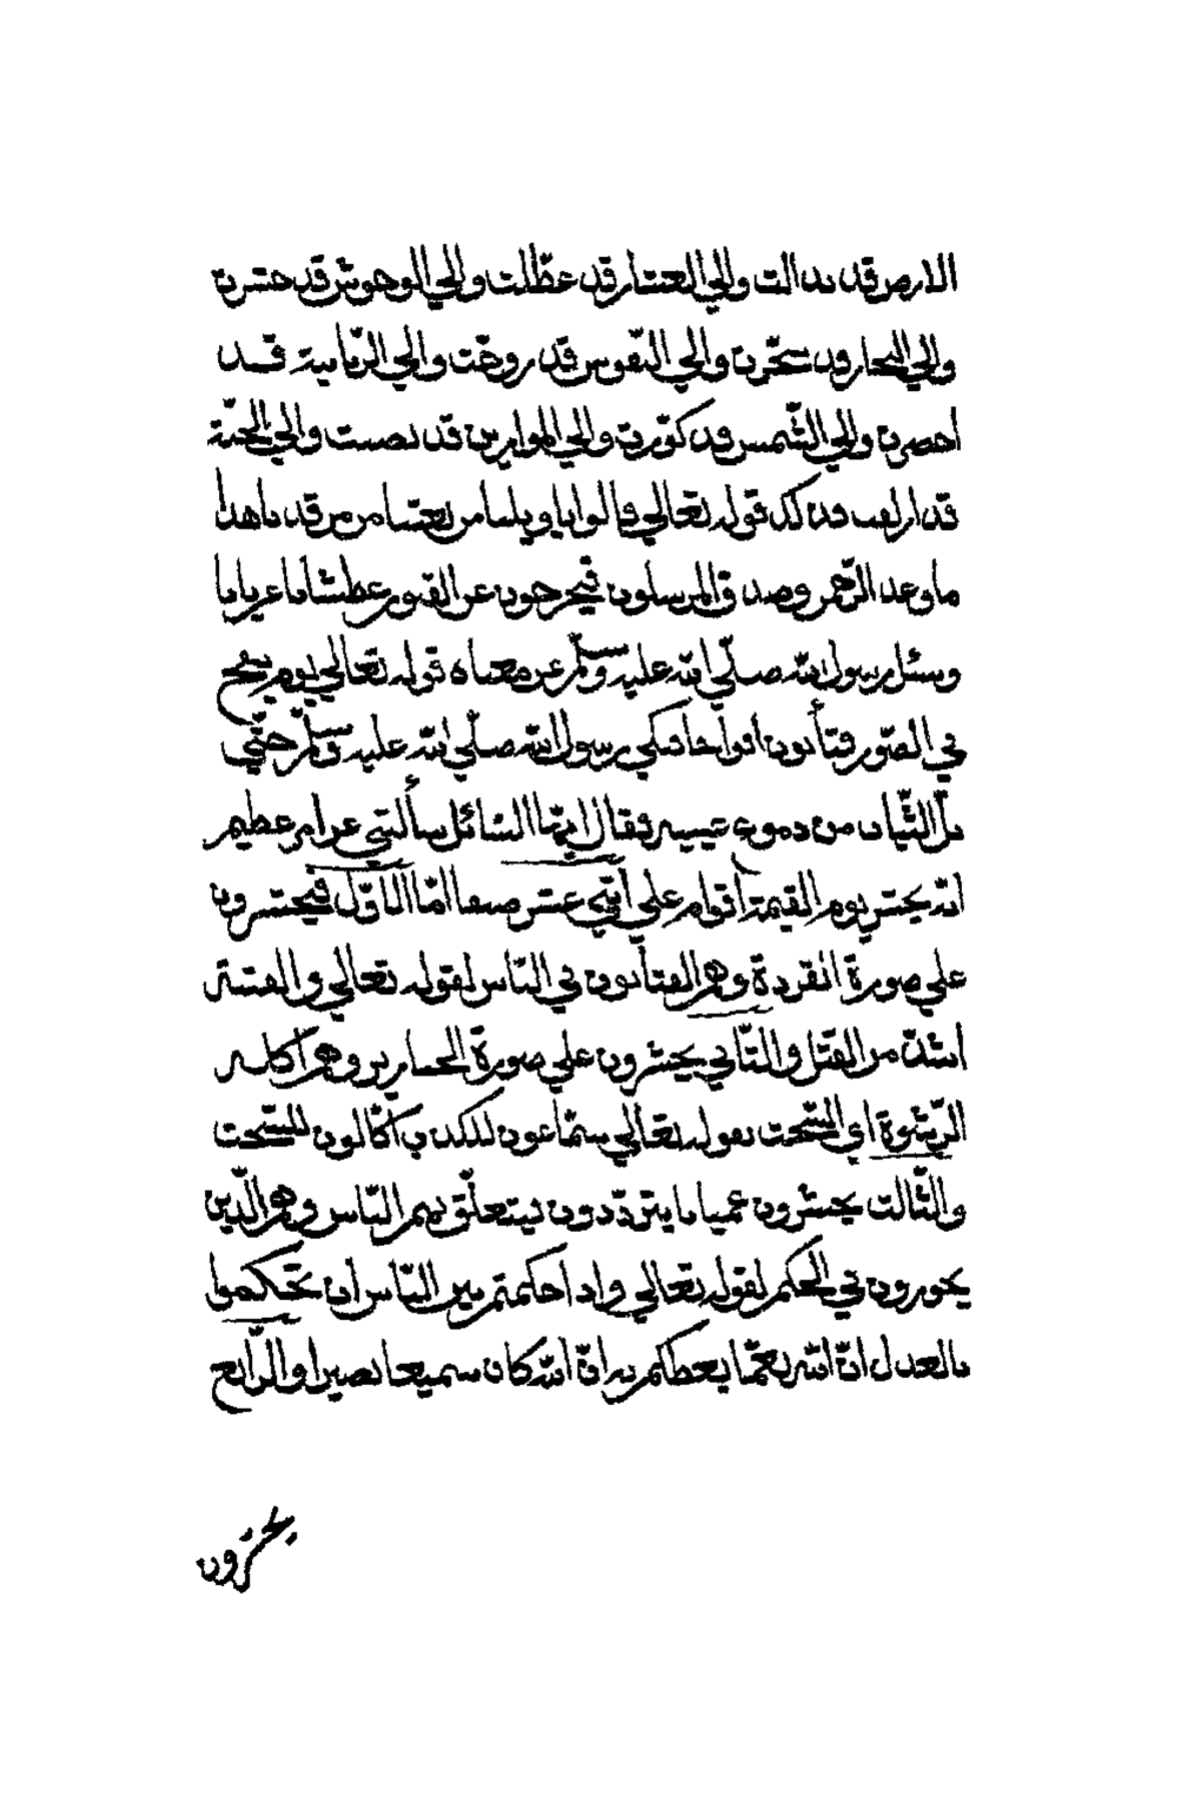 الارض قد بدالت والي العشار قد عطّلت والي الوحوش قد حشرت
والي البحار قد سجّرت والي النّفوس قد زوّجت والي الزّبانية قد
احضرت والي الشّمس قد كوّرت والي الموازين قد نصبت والي الجنّة
قد ازلفت فذلك قوله تعالي قالوا يا ويلنا من بعثنا من مرقدنا هذا
ما وعد الرّحمن وصدق المرسلون فيخرجون عن القبور عطشانا عريانا
وسئل رسول الله صلّي الله عليه وسلّم عن معناه قوله تعالي يوم ينفخ
في الصّور فتأتون افواجا فبكي رسول الله صلّي الله عليه وسلّم حتّي
بلّ الثّياب من دموع عينيه فقال ايّها السّائل سألتني عن امر عظيم
انّه يحشر يوم القيمة اقوام علي اثني عشر صنفا امّا الاوّل فيحشرون
علي صورة القردة وهم الفتّانون في النّاس لقوله تعالي والفتنة
اشدّ من القتل والثّاني يحشرون علي صورة الخنازير وهم اكله
الرّشوة اي السّحت بقوله تعالي سمّاعون للكذب اكّالون للسّحت
والثّالث يحشرون عميانا يتردّدون فيتعلّق بهم النّاس وهم الّذين
يجورون في الحكم لقوله تعالي واذا حكمتم بين النّاس ان تحكموا
بالعدل انّ الله نعمّا يعظكم به انّ الله كان سميعا بصيرا والرّابع